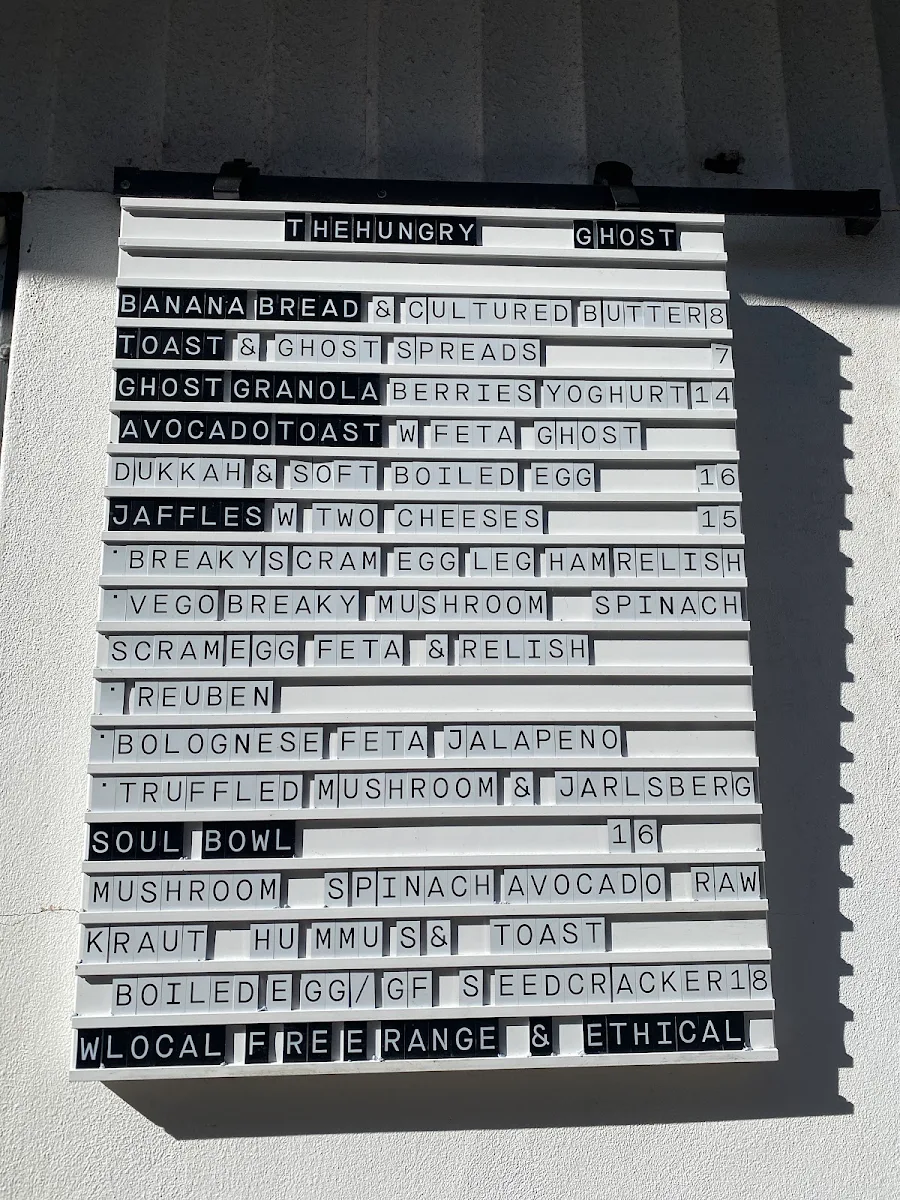 THEHUNGRY GHOST
BANANA BREAD & CULTURED BUTTER 8
TOAST & GHOST SPREADS 7
GHOST GRANOLA BERRIES YOGHURT 14
AVOCADO TOAST W FETA GHOST
DUKKAH & SOFT BOILED EGG 16
JAFFLES W TWO CHEESES 15
·BREAKY SCRAM EGG LEG HAM RELISH
·VEGO BREAKY MUSHROOM SPINACH
SCRAM EGG FETA & RELISH
·REUBEN
·BOLOGNESE FETA JALAPENO
·TRUFFLED MUSHROOM & JARLSBERG
SOUL BOWL 16
MUSHROOM SPINACH AVOCADO RAW
KRAUT HUMMUS & TOAST
BOILED EGG/ GF SEEDCRACKER 18
WLOCAL FREE RANGE & ETHICAL